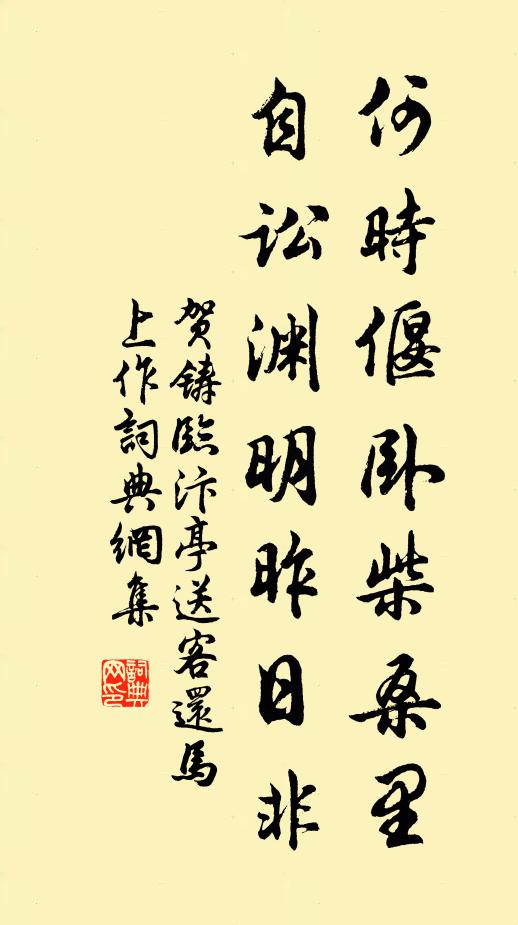 何時偃卧柴桑里
自訟渊明昨日非
贺鑄臨汴亭送客還馬
上作詞典網集
詞典
网印